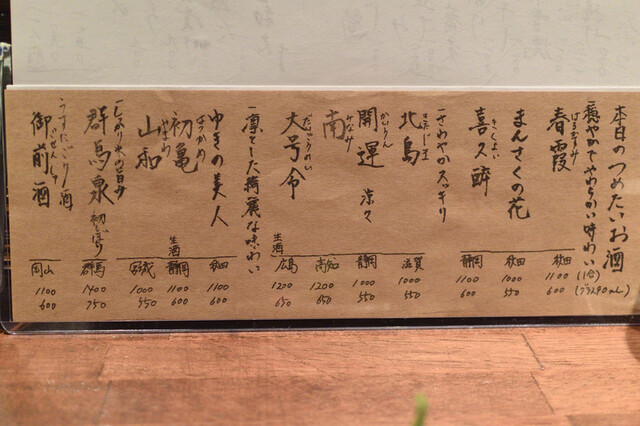 本日のつめたいお酒
穏やかでやわらかい味わい (1合)
(グラス90mL)
はるかすみ
春霞 秋田 1100 600
まんさくの花 秋田 1000 550
きくよい
喜久酔 静岡 1100 600
さわやかスッキリ
きたじま
北島 滋賀 1000 550
かいうん
開運 涼々 静岡 1000 550
みなみ
南 高知 1200 650
だいごうれい
大号令 生酒 広島 1200 650
凛とした綺麗な味わい
ゆきの美人 秋田 1100 600
はつかめ
初亀 生酒 静岡 1100 600
やまわ
山和 宮城 1000 550
しっかり米の旨み
群馬泉 初しぼり 群馬 1400 750
うすにごり酒
ごぜんしゅ
御前酒 岡山 1100 600